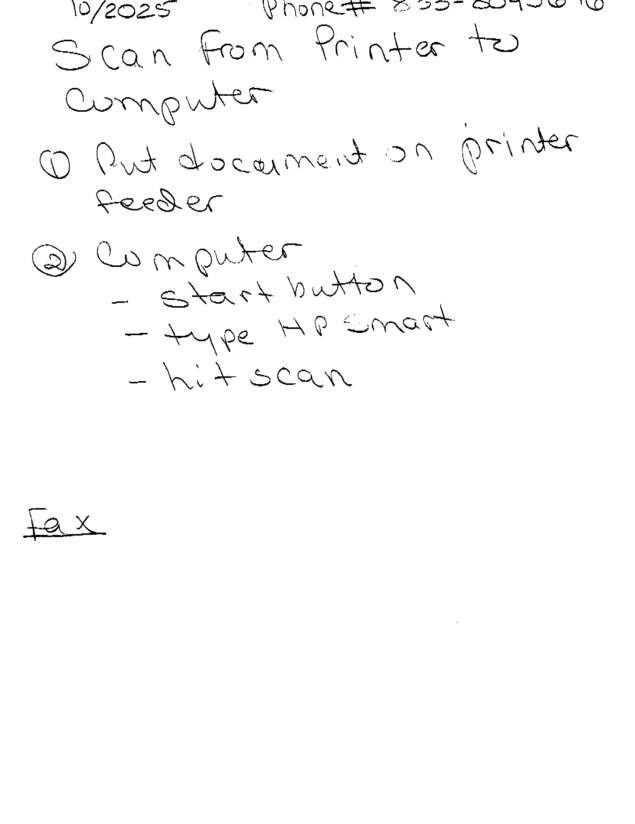 10/2025 Phone#
Scan from Printer to
Computer
① Put document on printer
feeder
② Computer
- start button
- type HP Smart
- hit scan
Fax